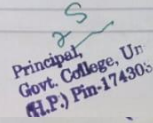 Principal,
Govt. College, Un
(H.P.) Pin-17430